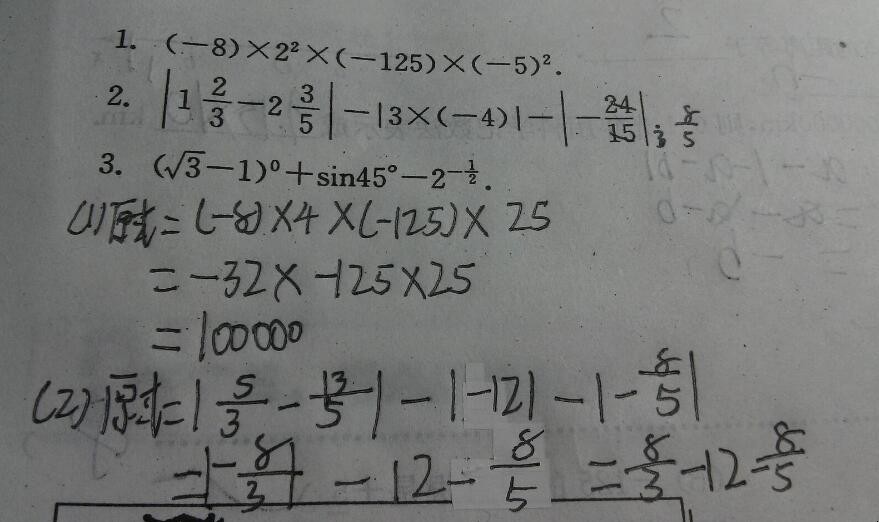 1. (−8)×2²×(−125)×(−5)².
2. |1 2/3 − 2 3/5| − |3×(−4)| − |−24/15|; 8/5
3. (√3−1)⁰+sin45°−2^(−1/2).
(1)原式=(-8)×4×(-125)×25
=-32×-125×25
=100000
(2)原式=|5/3 - 13/5| - |-12| - |-8/5|
=|-8/3| - 12 - 8/5 = 8/3 - 12 - 8/5